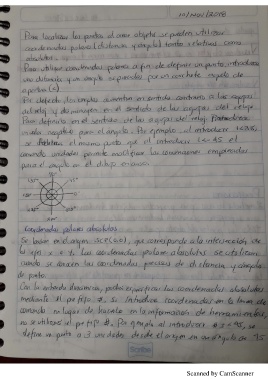 10/Nov/2018
Para localizar los puntos al crear objetos se pueden utilizar
coordenadas polares (distancia y ángulo) tanto relativas como
absolutas.
Para utilizar coordenadas polares a fin de designar un punto, introduzca
una distancia y un ángulo separados por un corchete angular de
apertura (<)
Por defecto los ángulos aumentan en sentido contrario a las agujas
del reloj y disminuyen en el sentido de las agujas del reloj.
Para definirlo en el sentido de las agujas del reloj
valor negativo para el ángulo. Por ejemplo al introducir 1<315
el mismo punto que al introducir 1<-45 el
comando unidades permite modificar la convenciones empleadas
para el ángulo en el dibujo
Coordenadas polares absolutas
Se basan en el origen SCP (0,0), que corresponde a la intersección de
los ejes X e Y, las coordenadas polares absolutas se utilizan
cuando se conocen las coordenadas precisas de distancia y ángulo
de punto.
Con la entrada dinámica, podrá especificar las coordenadas absolutas
mediante el prefijo #, si introduce coordenadas en la línea de
comando en lugar de hacerlo en la información de herramientas,
no se utiliza el prefijo #. Por ejemplo al introducir #3<45, se
define un punto a 3 unidades desde el origen en un ángulo de 45
Scribe
Scanned by CamScanner